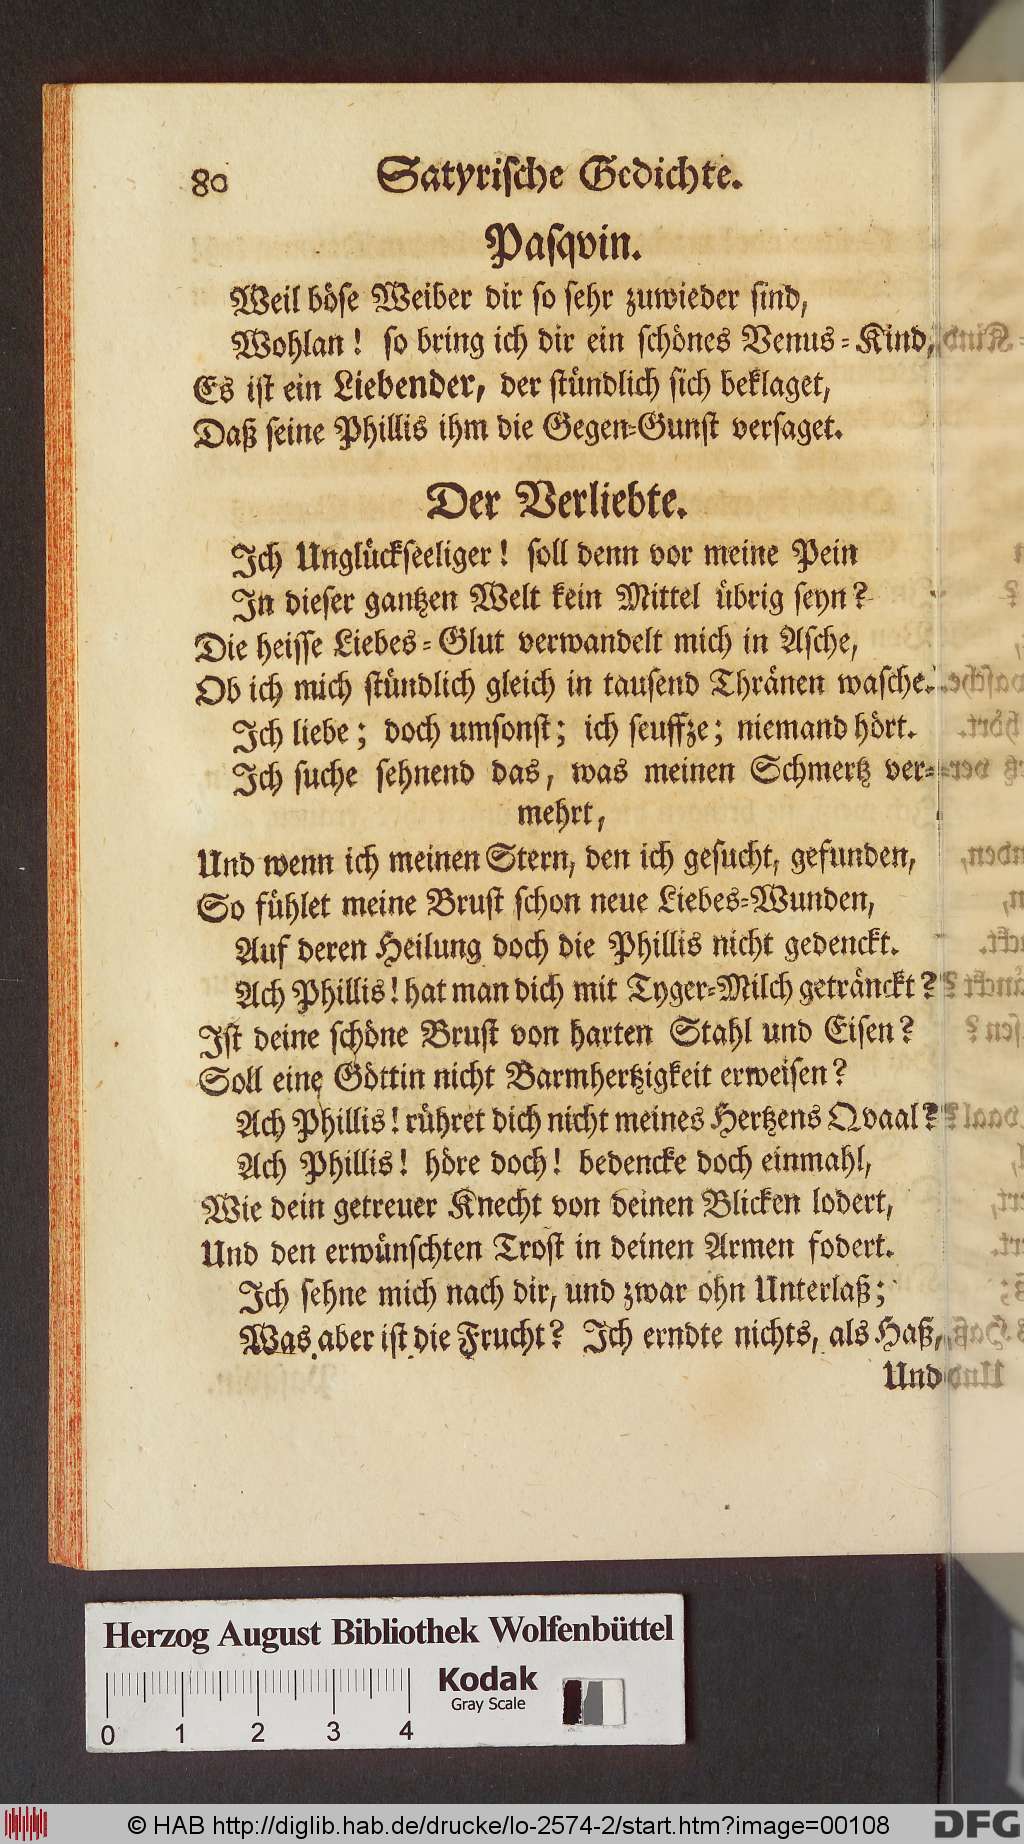 80 Satyrische Gedichte.
Pasqvin.
Weil böse Weiber dir so sehr zuwieder sind,
Wohlan! so bring ich dir ein schönes Venus-Kind,
Es ist ein Liebender, der stündlich sich beklaget,
Daß seine Phillis ihm die Gegen-Gunst versaget.
Der Verliebte.
Ich Unglückseeliger! soll denn vor meine Pein
In dieser gantzen Welt kein Mittel übrig seyn?
Die heisse Liebes-Glut verwandelt mich in Asche,
Ob ich mich stündlich gleich in tausend Thränen wasche.
Ich liebe; doch umsonst; ich seuffze; niemand hört.
Ich suche sehnend das, was meinen Schmertz ver-
mehrt,
Und wenn ich meinen Stern, den ich gesucht, gefunden,
So fühlet meine Brust schon neue Liebes-Wunden,
Auf deren Heilung doch die Phillis nicht gedenckt.
Ach Phillis! hat man dich mit Tyger-Milch getränckt?
Ist deine schöne Brust von harten Stahl und Eisen?
Soll eine Göttin nicht Barmhertzigkeit erweisen?
Ach Phillis! rühret dich nicht meines Hertzens Qvaal?
Ach Phillis! höre doch! bedencke doch einmahl,
Wie dein getreuer Knecht von deinen Blicken lodert,
Und den erwünschten Trost in deinen Armen fodert.
Ich sehne mich nach dir, und zwar ohn Unterlaß;
Was aber ist die Frucht? Ich erndte nichts, als Haß,
Und
Herzog August Bibliothek Wolfenbüttel
Kodak
Gray Scale
0 1 2 3 4
© HAB http://diglib.hab.de/drucke/lo-2574-2/start.htm?image=00108
DFG